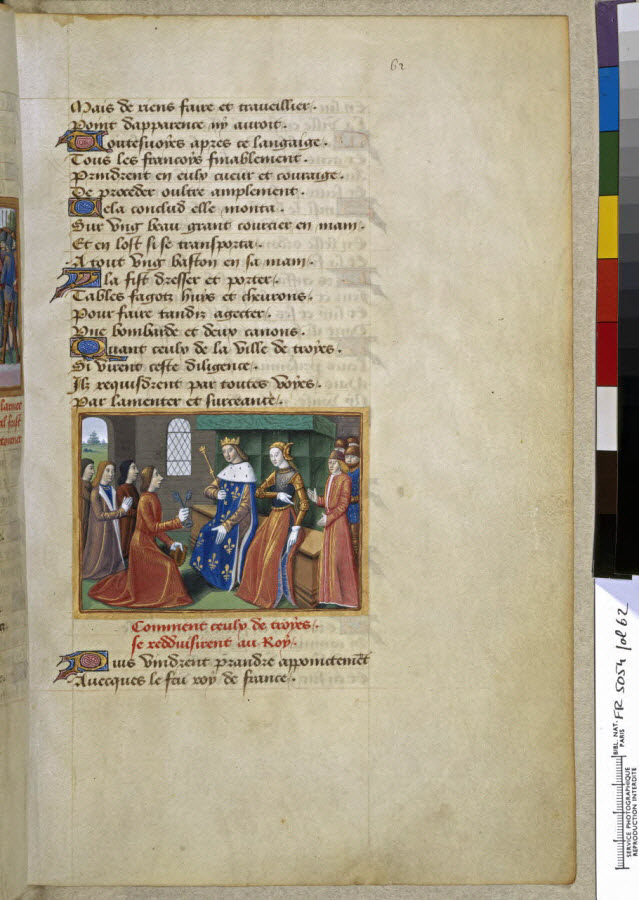 62
Mais de riens faire et traveillier.
Point dapparence ny avoit.
Toutesvoyes apres ce langaige.
Tous les francoys finablement.
Prindrent en eulx cueur et couraige.
De proceder oultre amplement.
Cela conclud elle monta.
Sur ung beau grant courcier en main.
Et en lost si se transporta.
A tout ung baston en sa main.
La fist dresser et porter.
Tables fagotz huys et chevrons.
Pour faire tandiz agecter.
Une bombarde et deux canons.
Quant ceulx de la ville de troyes.
Si virent ceste diligence.
Ilz requisdrent par toutes voyes.
Par lamenter et surceance.
Comment ceulx de troyes.
se redduisirent au Roy.
Puis vindrent prandre appoinctement
Avecques le feu roy de france.
BIBL. NAT. PARIS
FR 5054 fol 62
SERVICE PHOTOGRAPHIQUE
REPRODUCTION INTERDITE